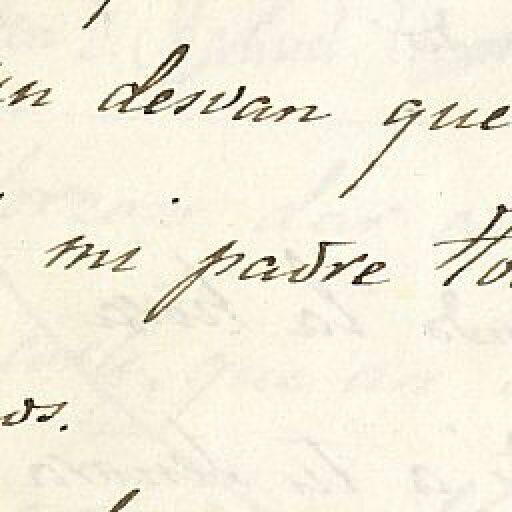 un desvan que
mi padre
os.